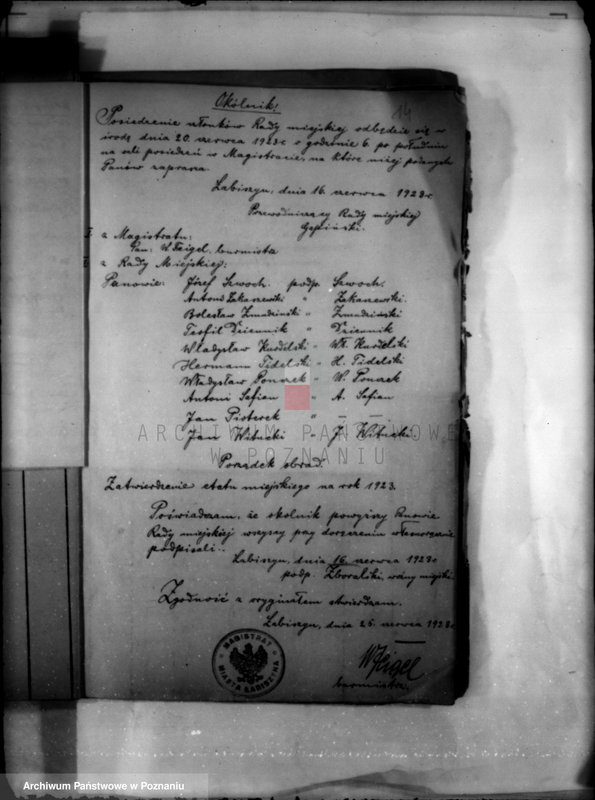 Okólnik!
14
Posiedzenie członków Rady miejskiej odbędzie się w
środę dnia 20. czerwca 1923 r. o godzinie 6. po południu
na sali posiedzeń w Magistracie, na które niżej podanych
Panów zaprasza
Łabiszyn, dnia 16. czerwca 1923 r
Przewodniczący Rady miejskiej
I. z Magistratu:
Pan: W. Feigel. burmistrz
II. z Rady Miejskiej:
Panowie: Józef Szwoch. podp. Szwoch.
Antoni Zakaszewski " Zakaszewski.
Bolesław Żmudziński " Żmudziński
Teofil Dziennik " Dziennik
Władysław Kurdelski " Wł. Kurdelski
Hermann Fidelski " H. Fidelski
Władysław Ponczek " W. Ponczek
Antoni Safian " A. Safian
Jan Pioterek " — — —
Jan Witucki " J. Witucki
ARCHIWUM PAŃSTWOWE
W POZNANIU
Porządek obrad.
Zatwierdzenie etatu miejskiego na rok 1923.
Poświadczam, że okolnik powyższy Panowie
Rady miejskiej wszyscy przy doręczeniu własnoręcznie
podpisali..
Łabiszyn, dnia 16. czerwca 1923 r
podp. Zboralski, woźny miejski.
Zgodność z oryginałem stwierdzam.
Łabiszyn, dnia 25. czerwca 1923 r.
MAGISTRAT
MIASTA ŁABISZYNA
W Feigel
burmistrz.
Archiwum Państwowe w Poznaniu